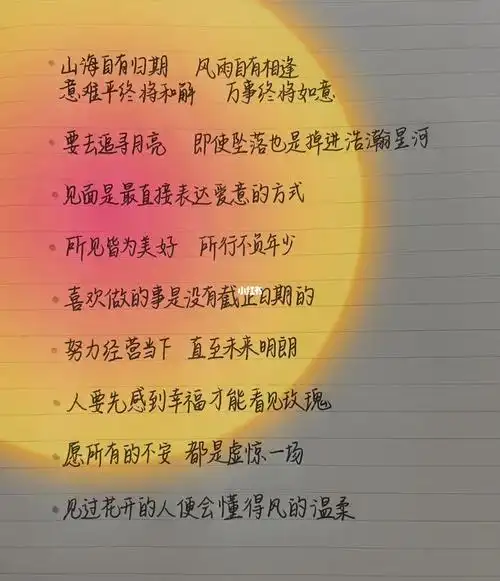 山海自有归期 风雨自有相逢
意难平终将和解 万事终将如意
要去追寻月亮 即使坠落也是掉进浩瀚星河
见面是最直接表达爱意的方式
所见皆为美好 所行不负年少
小红书
喜欢做的事是没有截止日期的
努力经营当下 直至未来明朗
人要先感到幸福才能看见玫瑰
愿所有的不安 都是虚惊一场
见过花开的人便会懂得风的温柔